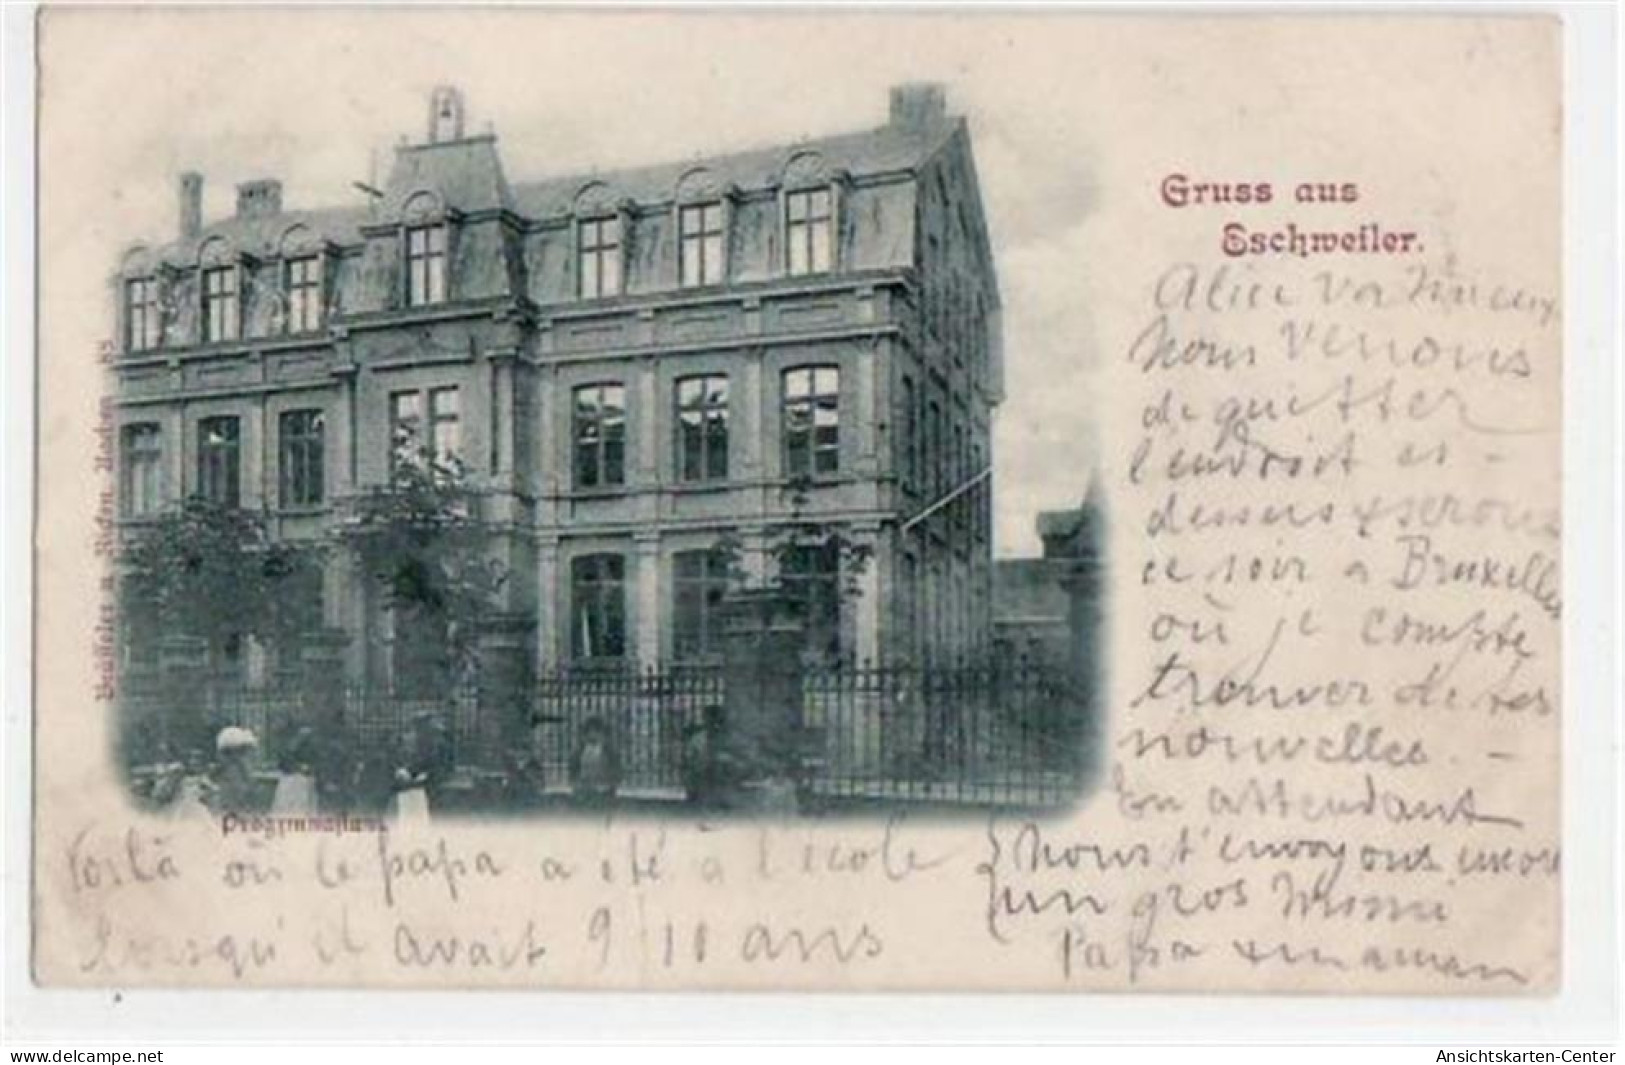 Gruss aus
Eschweiler.
Nous venons
de quitter
l'endroit ci-
dessus & serons
ce soir a Bruxelles
où je compte
trouver de tes
nouvelles. -
En attendant
nous t'envoyons encore
un gros Mimi
Papa & maman
Progymnasium.
Voilà où le papa a été à l'école
lorsqu'il avait 9/10 ans
www.delcampe.net
Ansichtskarten-Center